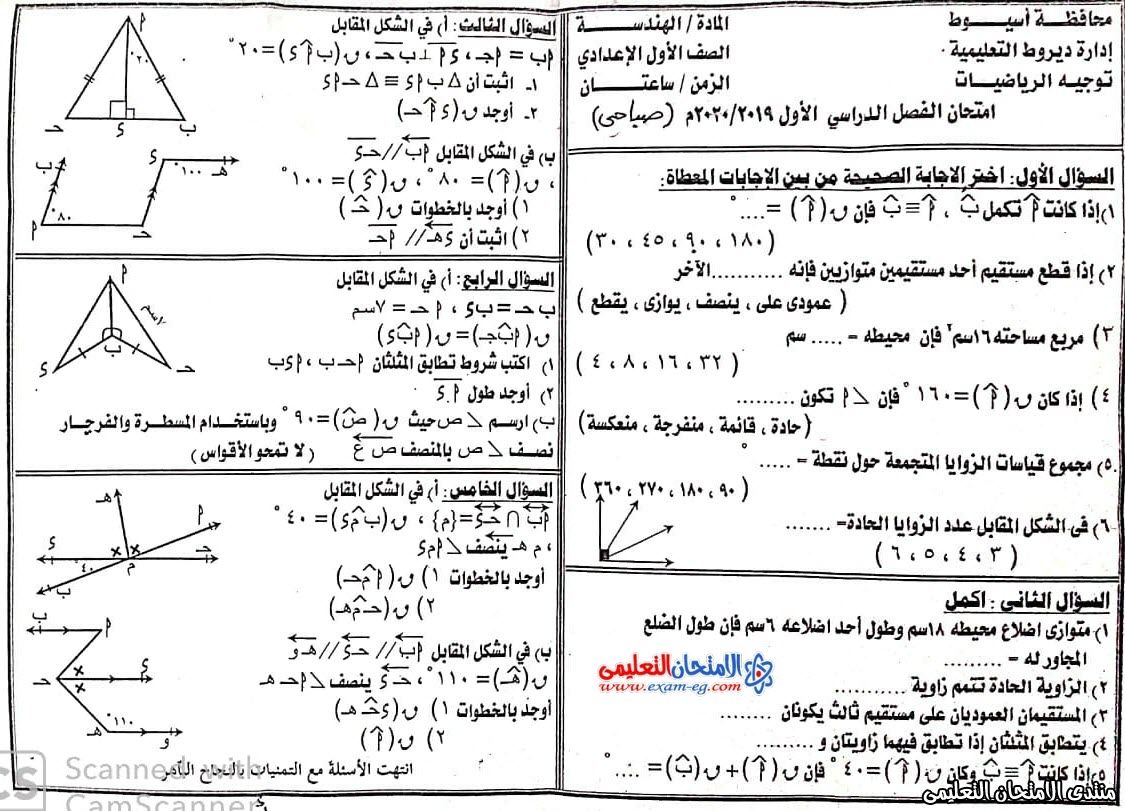 محافظة أسيوط
إدارة ديروط التعليمية
توجيه الرياضيات
المادة / الهندسة
الصف الأول الإعدادي
الزمن / ساعتان
امتحان الفصل الدراسي الأول ٢٠٢٠/٢٠١٩م (صباحى)
السؤال الأول: اختر الإجابة الصحيحة من بين الإجابات المعطاة:
١) إذا كانت أ̂ تكمل ب̂ ، أ̂ ≡ ب̂ فإن ن (أ̂) = .... °
(١٨٠ ، ٩٠ ، ٤٥ ، ٣٠)
٢) إذا قطع مستقيم أحد مستقيمين متوازيين فإنه ...........الآخر
( عمودى على ، ينصف ، يوازى ، يقطع )
٣) مربع مساحته ١٦سم٢ فإن محيطه = ..... سم
(٣٢ ، ١٦ ، ٨ ، ٤ )
٤) إذا كان ن (أ̂)=١٦٠° فإن ∠أ تكون .........
(حادة ، قائمة ، منفرجة ، منعكسة)
٥) مجموع قياسات الزوايا المتجمعة حول نقطة = ..... °
(٩٠ ، ١٨٠ ، ٢٧٠ ، ٣٦٠ )
٦) فى الشكل المقابل عدد الزوايا الحادة= .......
(٣ ، ٤ ، ٥ ، ٦ )
السؤال الثانى : اكمل
١) متوازى اضلاع محيطه ١٨سم وطول أحد اضلاعه ٦سم فإن طول الضلع
المجاور له = .........
٢) الزاوية الحادة تتمم زاوية ...........
٣) المستقيمان العموديان على مستقيم ثالث يكونان ........
٤) يتطابق المثلثان إذا تطابق فيهما زاويتان و .........
٥) إذا كانت أ̂ ≡ ب̂ وكان ن (أ̂)=٤٠° فإن ن (أ̂)+ ن (ب̂)= .... °
الامتحان التعليمى
www.exam-eg.com
منتدى الامتحان التعليمى
السؤال الثالث: أ) في الشكل المقابل
أب = أجـ ، أء ⊥ ب حـ ، ن (ب أ̂ ء)=٢٠°
١ـ اثبت أن Δ ب أ ء ≡ Δ حـ أ ء
٢ـ أوجد ن (ء أ̂ حـ)
أ
٢٠°
حـ ء ب
ب) في الشكل المقابل أب // حـ ء
، ن (أ̂)= ٨٠° ، ن (ء̂)= ١٠٠°
١) أوجد بالخطوات ن (حـ̂)
٢) اثبت أن ء هـ // أ حـ
ب ء هـ
١٠٠°
٨٠°
أ حـ
السؤال الرابع: أ) في الشكل المقابل
ب حـ = ب ء ، أ حـ = ٧سم
ن (أ ب̂ جـ)= ن (أ ب̂ ء)
١) اكتب شروط تطابق المثلثان أ حـ ب ، أ ء ب
٢) أوجد طول أ ء
أ
٧سم
ء ب حـ
ب) ارسم ∠ ص حيث ن (ص̂)=٩٠° وباستخدام المسطرة والفرجار
نصف ∠ ص بالمنصف ص ع (لا تمحو الأقواس)
السؤال الخامس: أ) في الشكل المقابل
أب ∩ حـ ء ={م} ، ن (ب م̂ ء)=٤٠°
، م هـ ينصف ∠ أ م ء
أوجد بالخطوات ١) ن (أ م̂ حـ)
٢) ن (حـ م̂ هـ)
هـ
أ
ء × × حـ
٤٠° م
ب
ب) في الشكل المقابل أب // حـ ء // هـ و
ن (هـ̂)=١١٠° ، حـ ء ينصف ∠ أ حـ هـ
أوجد بالخطوات ١) ن (ء حـ̂ هـ)
٢) ن (أ̂)
ب أ
حـ × × ء
١١٠°
هـ و
انتهت الأسئلة مع التمنيات بالنجاح الباهر
CS
Scanned with
CamScanner